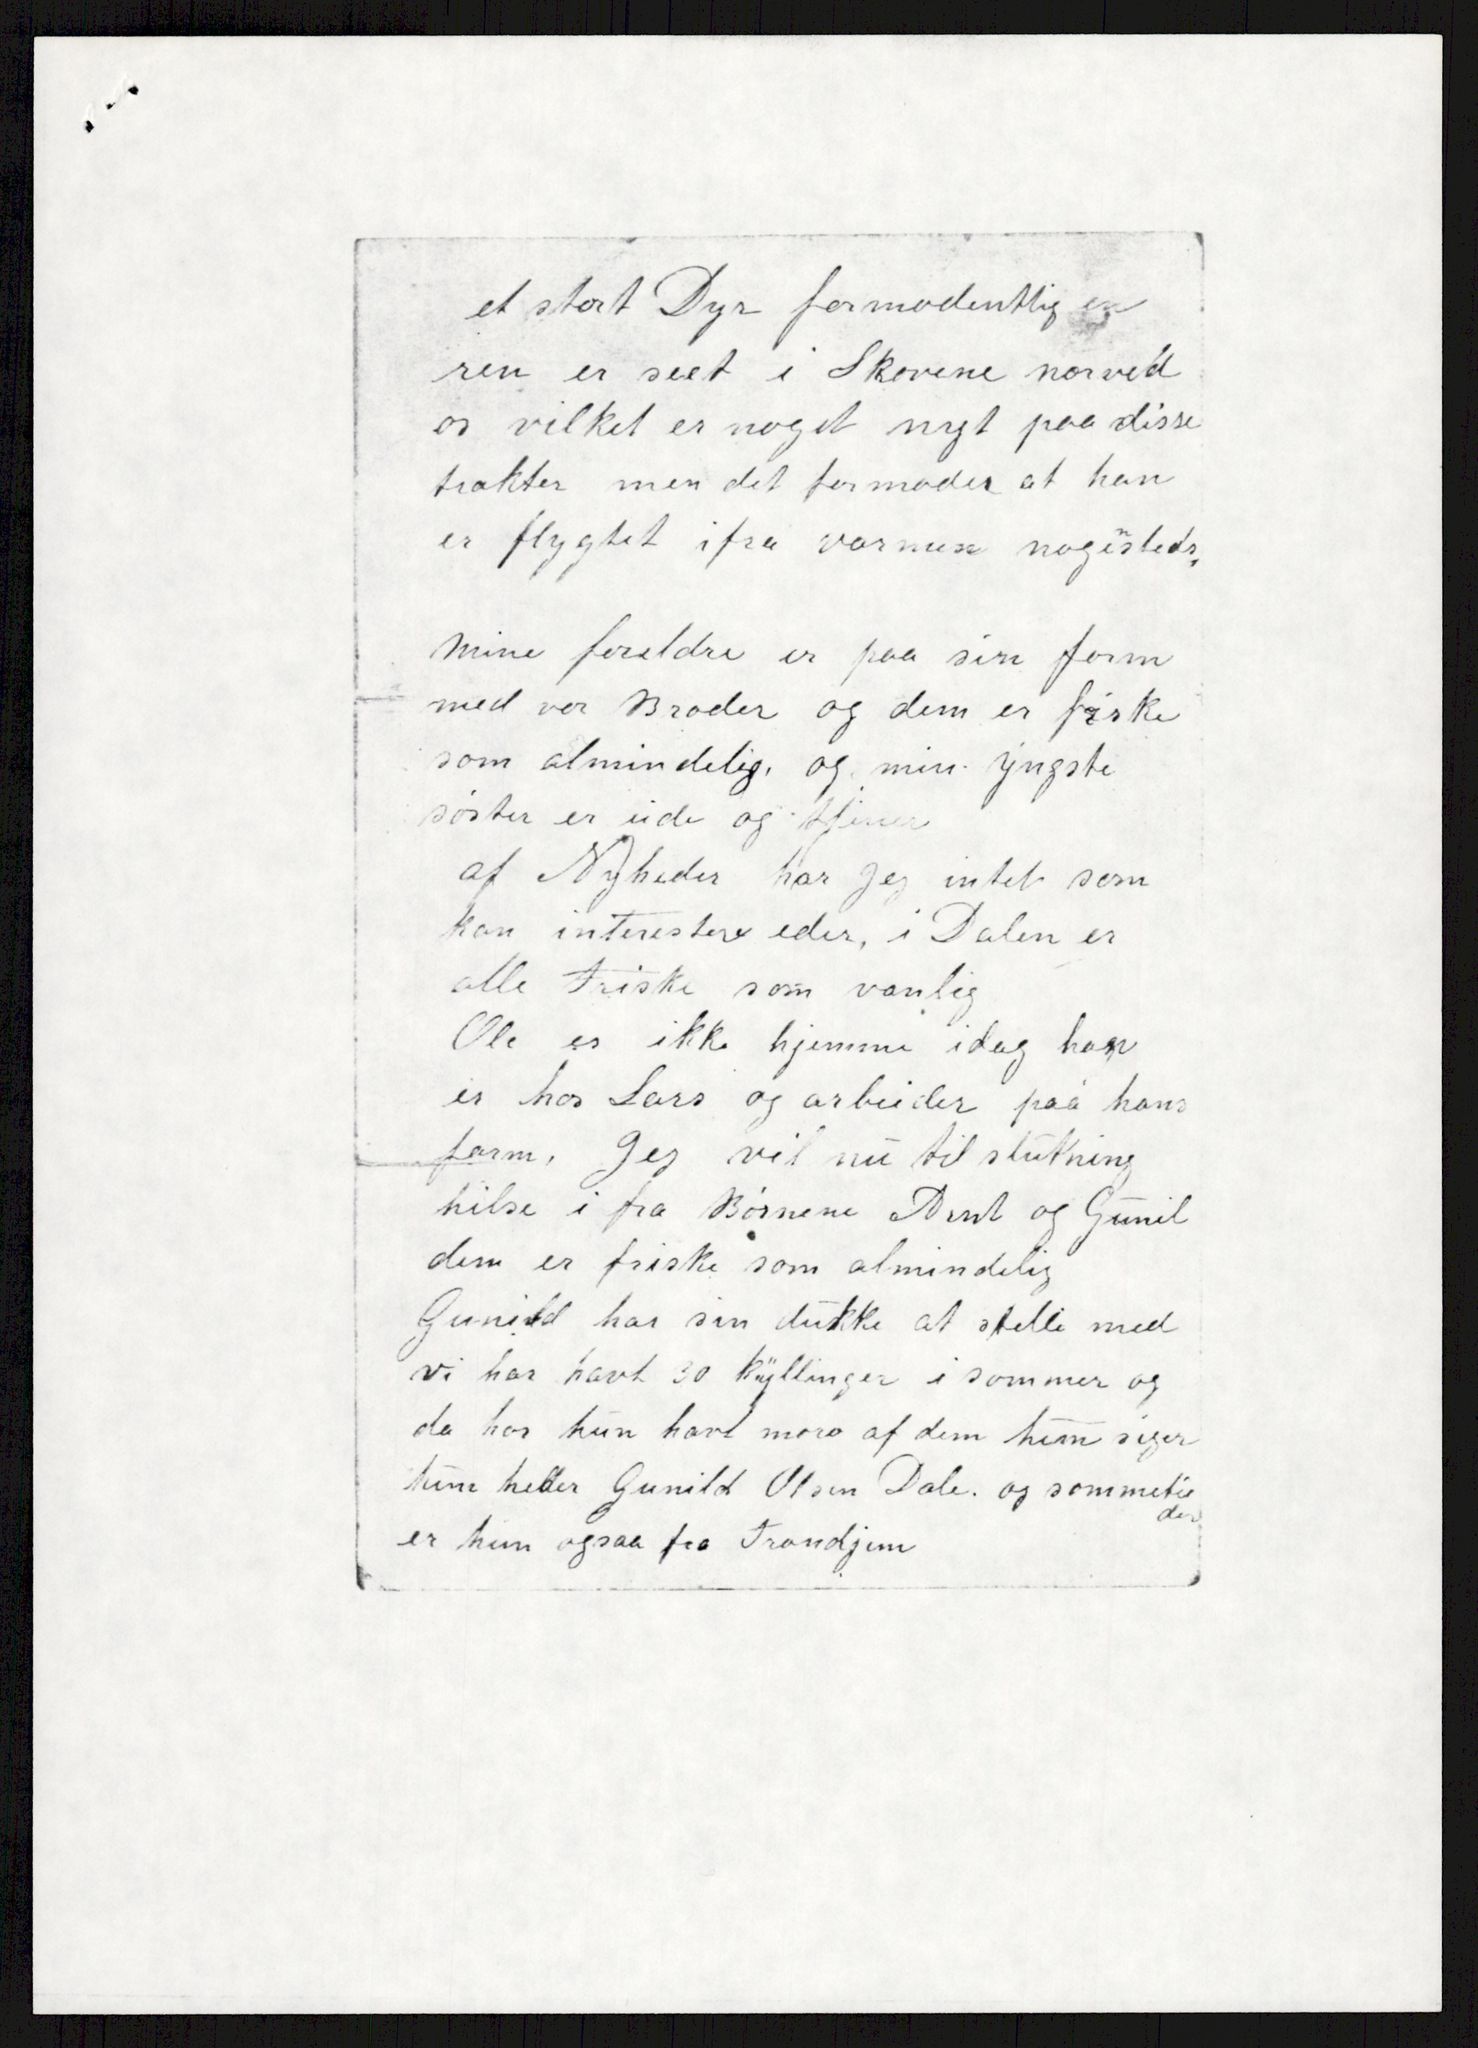 et stort Dyr formodentlig en
ren er seet i Skovene norved
os vilket er noget nygt paa disse
trakter men det formodes at han
er flygtet ifra varmen nogensteds.
Mine foreldre er paa sin farm
med vor Broder og dem er friske
som almindelig, og min yngste
søster er ude og tjener
af Nyheder har Jeg intet som
kan interestere eder, i Dalen er
alle friske som vanlig
Ole er ikke hjemme idag han
er hos Lars og arbeider paa hans
farm, Jeg vil nu til slutning
hilse i fra Børnene Arnt og Gunil
dem er friske som almindelig
Gunild har sin dukke at stelle med
vi har havt 30 kyllinger i sommer og
da har hun havt moro af dem hun siger
hun heder Gunild Olsen Dale. og sommetie
der
er hun ogsaa fra Trondjem